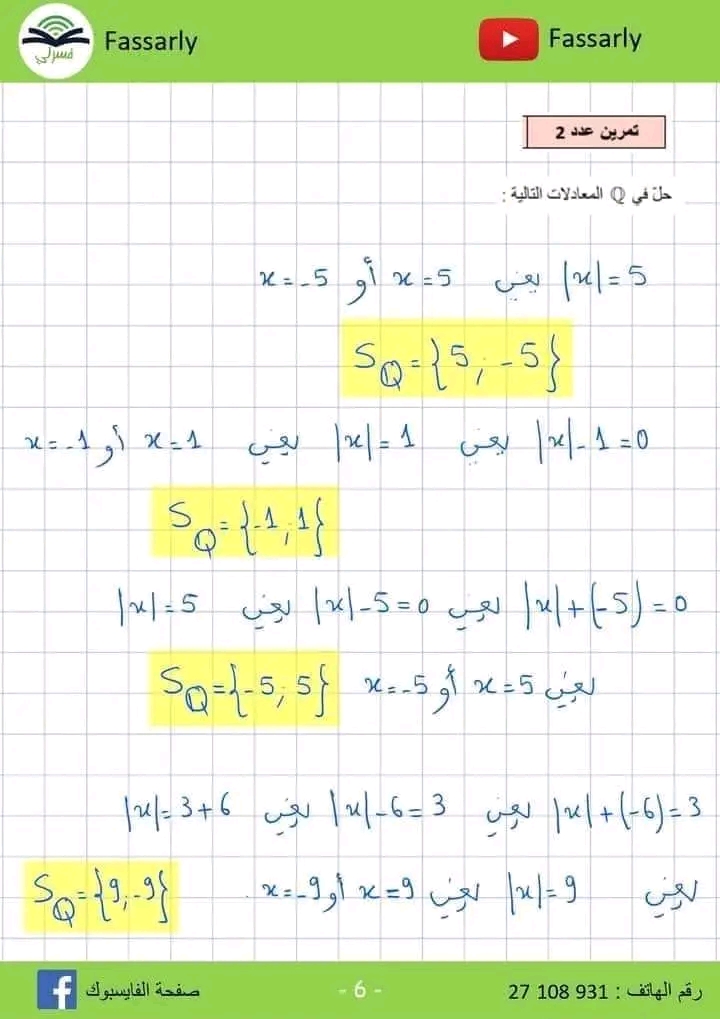 فسرلي Fassarly Fassarly
تمرين عدد 2
حلّ في ℚ المعادلات التالية :
|x|=5 يعني x=5 أو x=-5
S_Q={5;-5}
|x|-1=0 يعني |x|=1 يعني x=1 أو x=-1
S_Q={-1;1}
|x|+(-5)=0 يعني |x|-5=0 يعني |x|=5
يعني x=5 أو x=-5 S_Q={-5;5}
|x|+(-6)=3 يعني |x|-6=3 يعني |x|=3+6
يعني |x|=9 يعني x=9 أو x=-9. S_Q={9;-9}
رقم الهاتف : 27 108 931 - 6 - صفحة الفايسبوك f